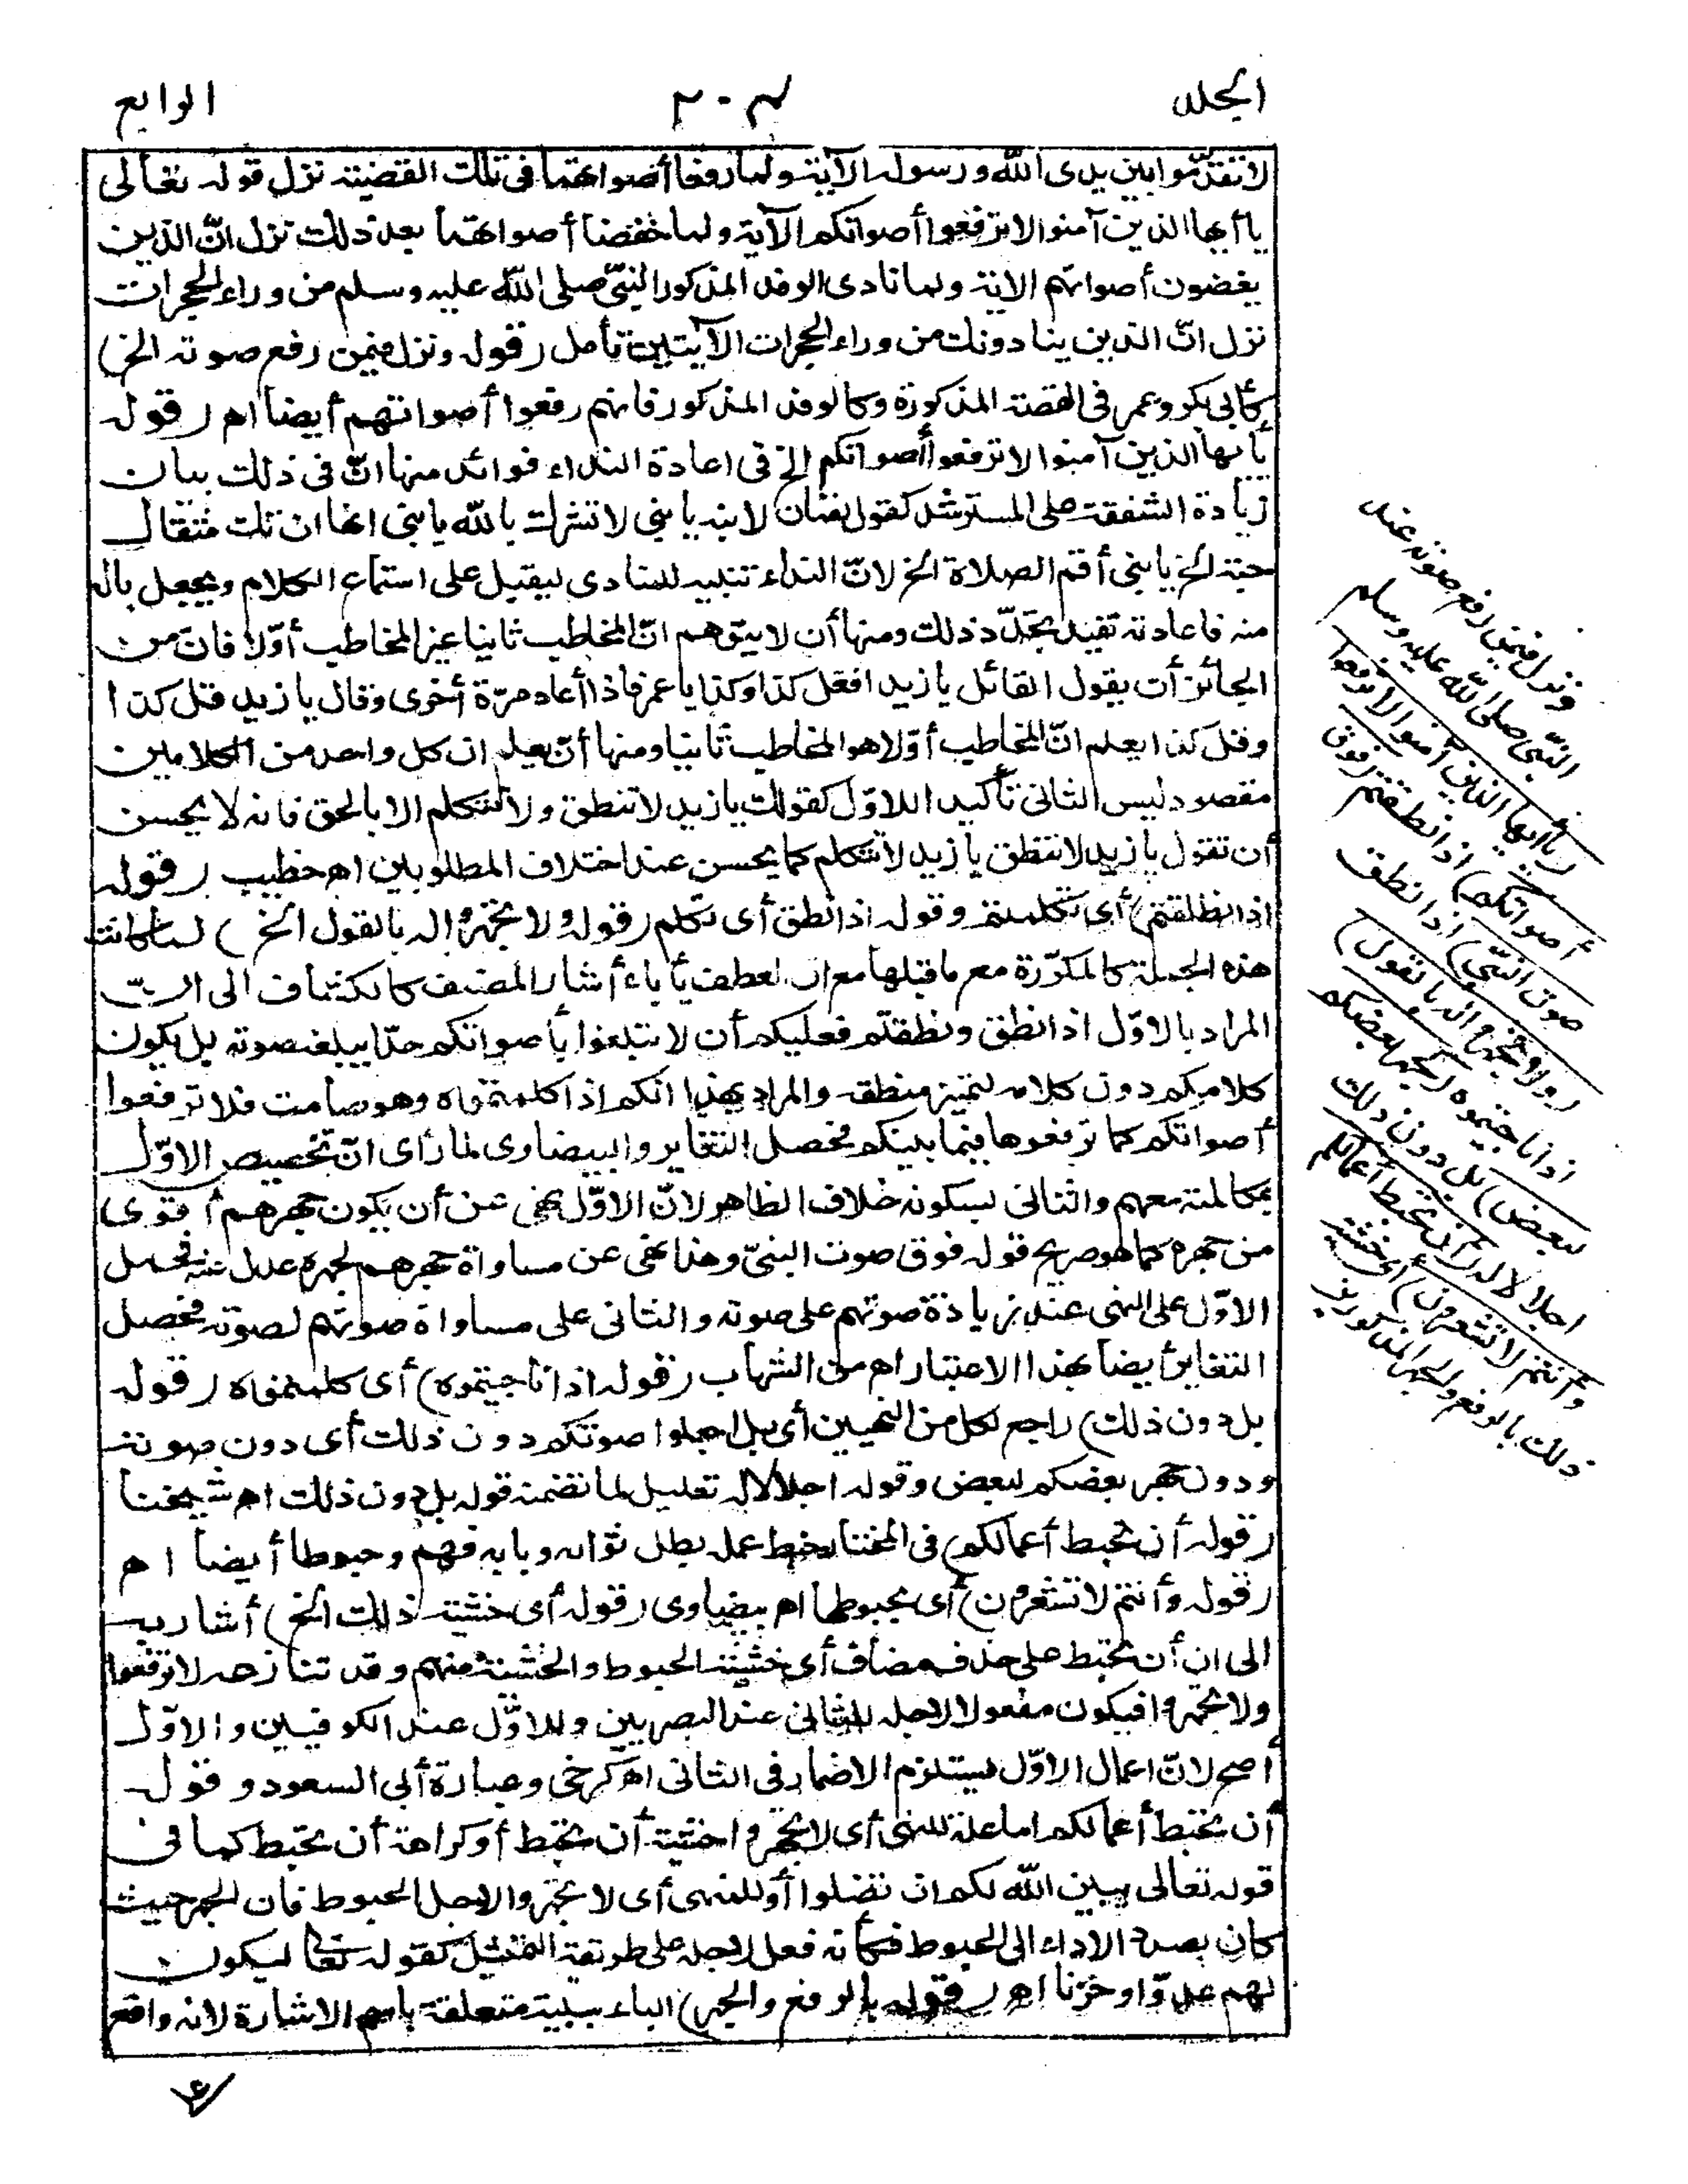 الجلد
٢٠٣
الرابع
لا تقدّموا بين يدى الله ورسوله الآية ولما رفعا أصواتهما فى تلك القضية نزل قوله تعالى
يا أيها الذين آمنوا لا ترفعوا أصواتكم الآية ولما خفضا أصواتهما بعد ذلك نزل انّ الذين
يغضون أصواتهم الاية ولما نادى الوفد المذكور النبىّ صلى الله عليه وسلم من وراء الحجرات
نزل انّ الذين ينادونك من وراء الحجرات الآيتين تأمل (قوله ونزل فيمن رفع صوته الخ)
كأبى بكر وعمر فى القصة المذكورة وكالوفد المذكور فانهم رفعوا أصواتهم أيضا اه (قوله
يا أيها الذين آمنوا لا ترفعوا أصواتكم الخ فى اعادة النداء فوائد منها انّ فى ذلك بيان
زيادة الشفقة على المسترشد كقول لقمان لابنه يا بنى لا تشرك بالله يا بنى انها ان تك مثقال
حبة الخ يا بنى أقم الصلاة الخ لانّ النداء تنبيه للمنادى ليقبل على استماع الكلام ويجعل باله
منه فاعادته تفيد تجدّد ذلك ومنها أن لا يتوهم انّ المخاطب ثانيا غير المخاطب أوّلا فانّ من
الجائز أن يقول القائل يا زيد افعل كذا وكذا يا عمر فاذا أعاد مرّة أخرى وقال يا زيد قل كذا
وقل كذا يعلم انّ المخاطب أوّلا هو المخاطب ثانيا ومنها أن يعلم ان كل واحد من الكلامين
مقصود ليس الثانى تأكيدا للاوّل كقولك يا زيد لا تنطق ولا تتكلم الا بالحق فانه لا يحسن
أن تقول يا زيد لا تنطق يا زيد لا تتكلم كما يحسن عند اختلاف المطلوبين اه خطيب (قوله
اذا نطلقتم) أى تكلمتم وقوله اذا نطق أى تكلم (قوله ولا تجهروا له بالقول الخ) لما كانت
هذه الجملة كالمكرّرة مع ما قبلها مع ان العطف يأباه أشار المصنف كالكشاف الى انّ
المراد بالاوّل اذا نطق ونطقتم فعليكم أن لا تبلغوا بأصواتكم حدّا يبلغه صوته بل يكون
كلامكم دون كلامه ليتميز منطقه والمراد بهذا انكم اذا كلمتموه وهو صامت فلا ترفعوا
أصواتكم كما ترفعوها فيما بينكم فحصل التغاير والبيضاوى لما رأى انّ تخصيص الاوّل
بمكالمته معهم والثانى بسكونه خلاف الظاهر لانّ الاوّل نهى عن أن يكون جهرهم أقوى
من جهره كما هو صريح قوله فوق صوت النبىّ وهذا نهى عن مساواة جهرهم لجهره عدل عنه فحمل
الاوّل على النهى عند زيادة صوتهم على صوته والثانى على مساواة صوتهم لصوته فحصل
التغاير أيضا بهذا الاعتبار اه من الشهاب (قوله اذا ناجيتموه) أى كلمتموه (قوله
بل دون ذلك) راجع لكل من النهيين أى بل اجعلوا صوتكم دون ذلك أى دون صوته
ودون جهر بعضكم لبعض وقوله اجلالا له تعليل لما تضمنه قوله بل دون ذلك اه شيخنا
(قوله أن تحبط أعمالكم) فى المختار حبط عمله بطل ثوابه وبابه فهم وحبوطا أيضا اه
(قوله وأنتم لا تشعرون) أى بحبوطها اه بيضاوى (قوله أى خشية ذلك الخ) أشار به
الى ان أن تحبط على حذف مضاف أى خشية الحبوط والخشية منهم وقد تنازعه لا ترفعوا
ولا تجهروا فيكون مفعولا لاجله للثانى عند البصريين وللاوّل عند الكوفيين والاوّل
أصح لانّ اعمال الاوّل يستلزم الاضمار فى الثانى اه كرخى وعبارة أبى السعود وقوله
أن تحبط أعمالكم اما علة للنهى أى لا تجهروا خشية أن تحبط أو كراهة أن تحبط كما فى
قوله تعالى يبين الله لكم ان تضلوا أو للنهى أى لا تجهروا لاجل الحبوط فان الجهر حيث
كان بصدد الاداء الى الحبوط فكأنه فعل لاجله على طريقة التمثيل كقوله تعالى ليكون
لهم عدوّا وحزنا اه (قوله بالرفع والجهر) الباء سببية متعلقة باسم الاشارة لانه واقع
ونزل فيمن رفع صوته عند
النبىّ صلى الله عليه وسلم
(يا أيها الذين آمنوا لا ترفعوا
أصواتكم) اذا نطقتم (فوق
صوت النبىّ) اذا نطق
(ولا تجهروا له بالقول)
اذا ناجيتموه (كجهر بعضكم
لبعض) بل دون ذلك
اجلالا له (أن تحبط أعمالكم
وأنتم لا تشعرون) أى خشية
ذلك بالرفع والجهر المذكورين